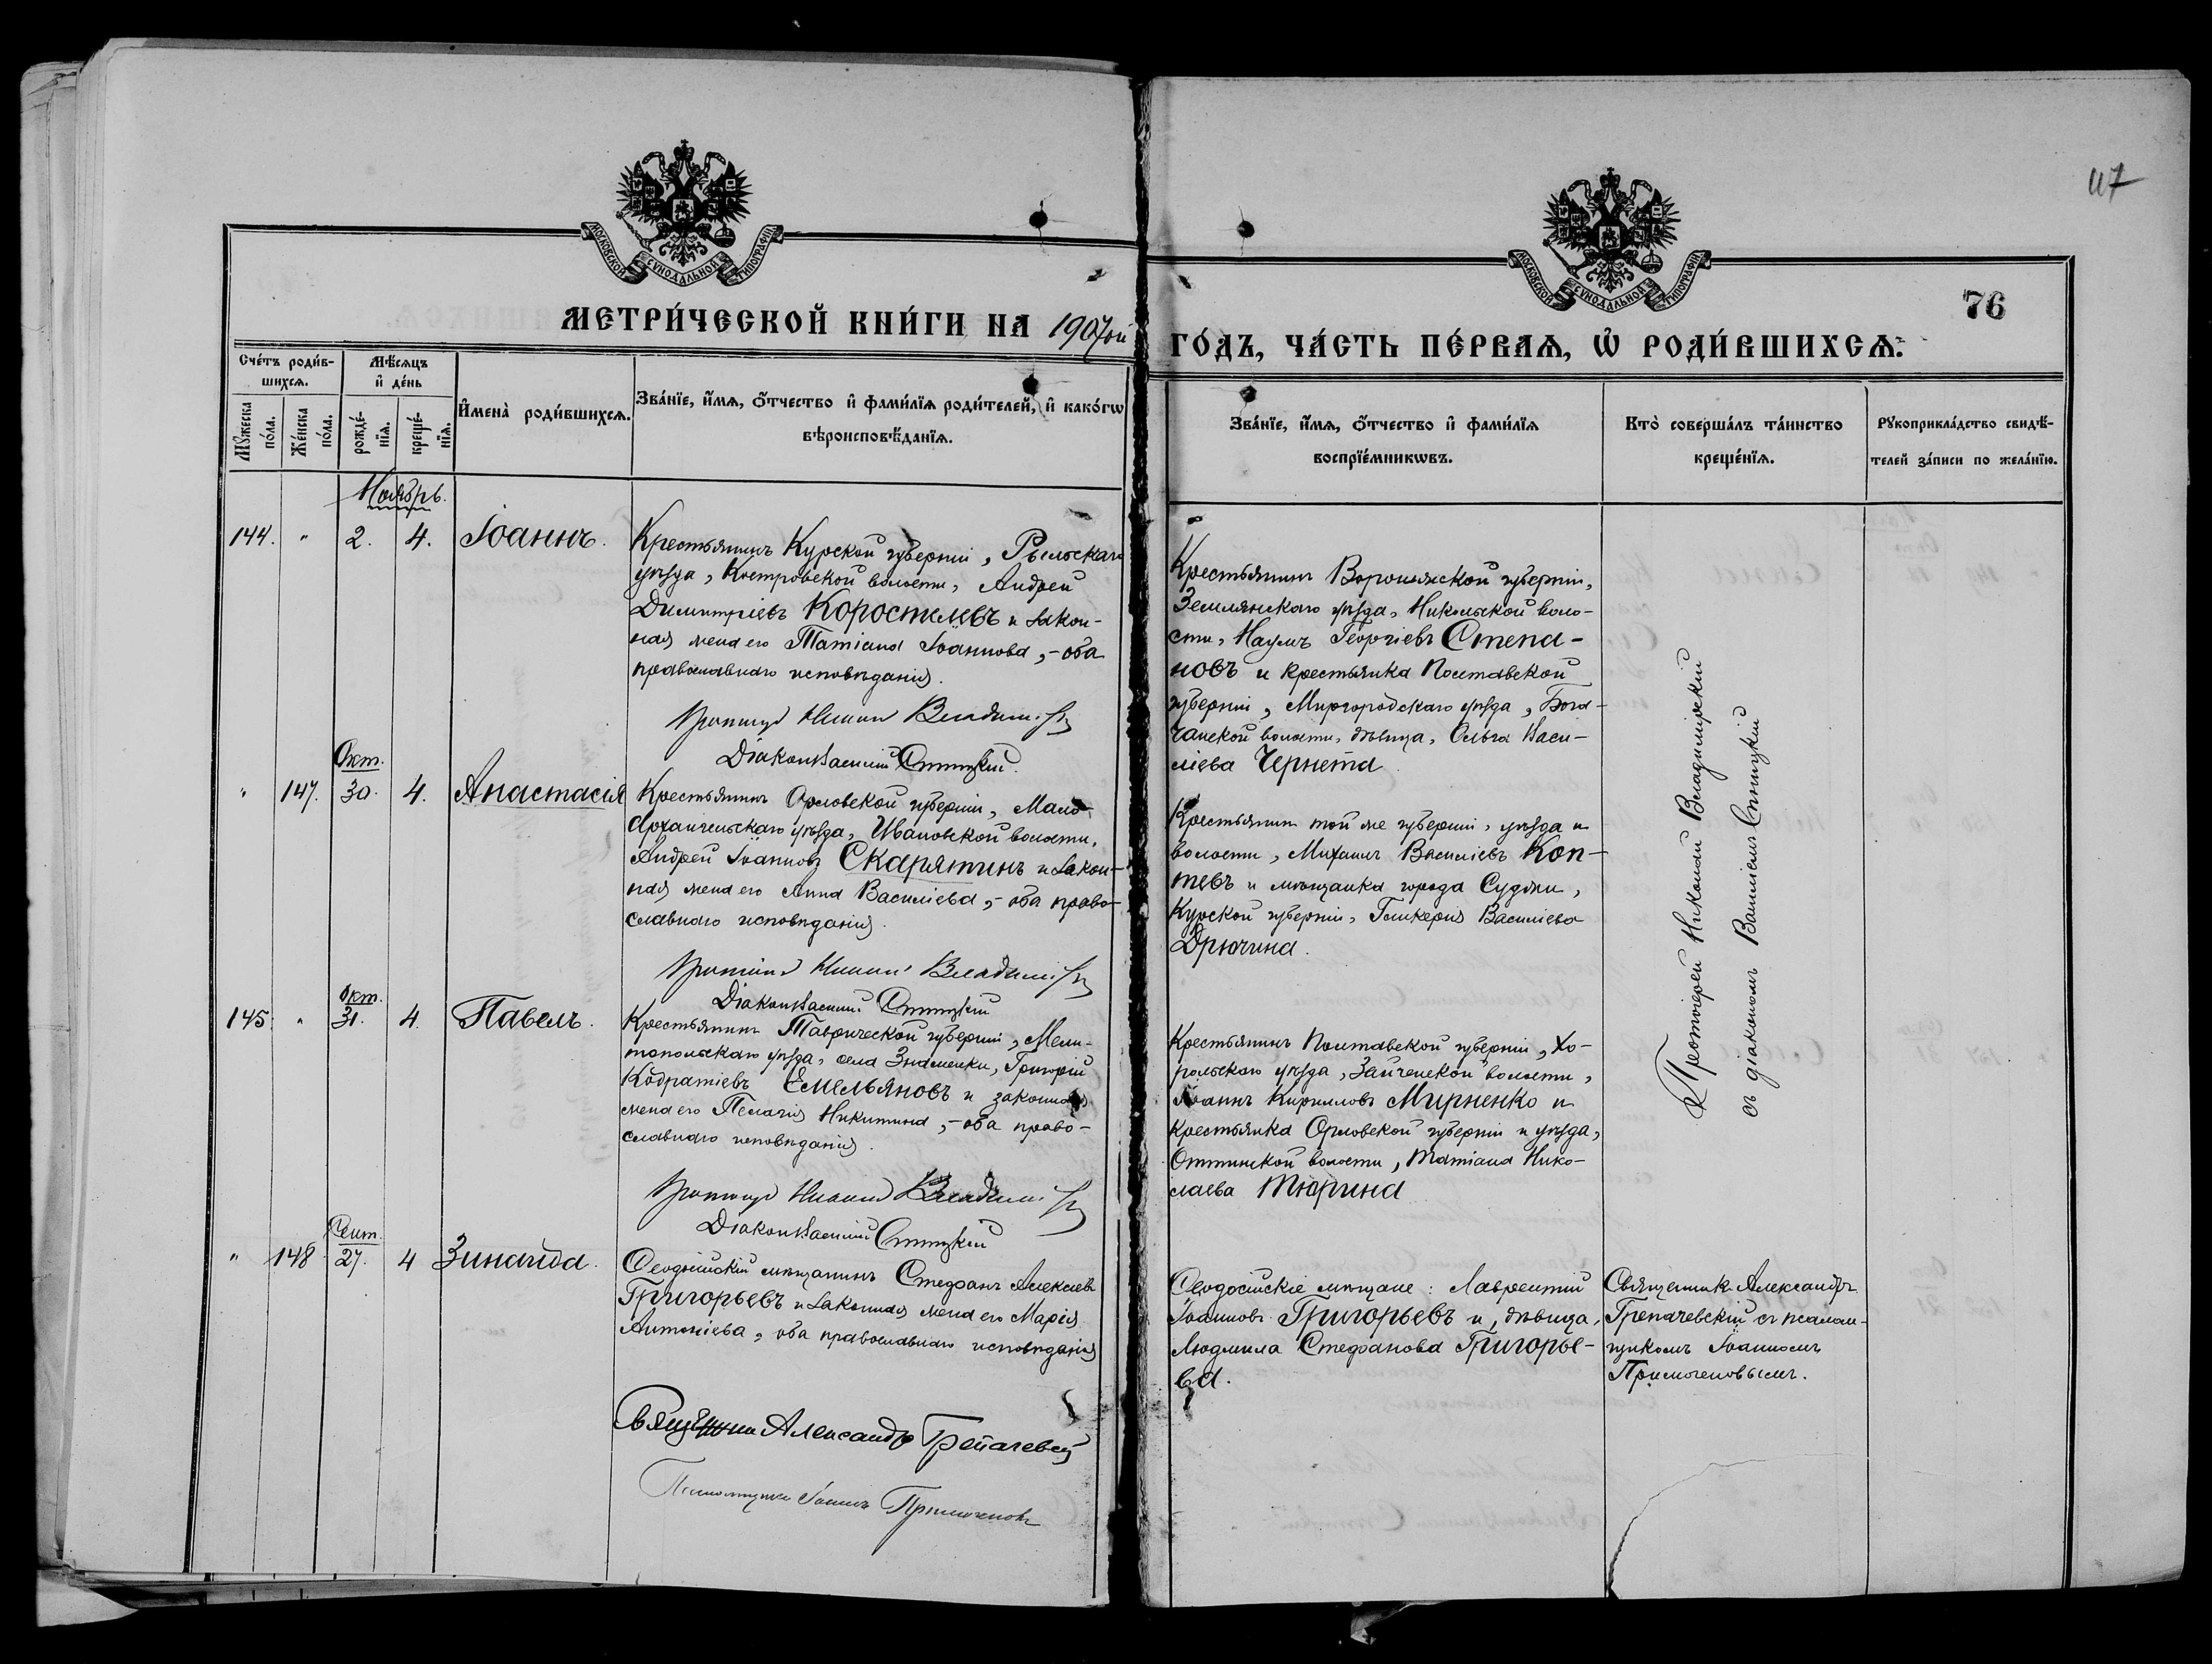 117
76
МОСКОВСКОЙ СѴНОДАЛЬНОЙ ТИПОГРАФІИ
МОСКОВСКОЙ СѴНОДАЛЬНОЙ ТИПОГРАФІИ
МЕТРИ́ЧЕСКОЙ КНИ́ГИ НА 1907ой
ГО́ДЪ, ЧА́СТЬ ПЕ́РВАѦ, Ѽ РОДИ́ВШИХСѦ.
Сче́тъ роди́в-
шихсѧ.
Мѣ́сѧцъ
и҆ де́нь
Мꙋ́жеска
по́ла.
Же́нска
по́ла.
рожде́-
нїѧ.
креще́-
нїѧ.
И҆мена̀ роди́вшихсѧ.
Зва́нїе, и҆́мѧ, ѻ҆́тчество и҆ фами́лїѧ роди́телей, и҆ како́гѡ
вѣроисповѣ́данїѧ.
Зва́нїе, и҆́мѧ, ѻ҆́тчество и҆ фами́лїѧ
воспрїе́мникѡвъ.
Кто̀ соверша́лъ та́инство
креще́нїѧ.
Рꙋкоприкла́дство свидѣ́-
телей за́писи по жела́нїю.
Ноябрь.
144. " 2. 4. Іоаннъ.
Крестьянинъ Курской губерніи, Рыльскаго
уѣзда, Костровской волости, Андрей
Димитріевъ Коростелевъ и закон-
ная жена его Татіана Іоаннова,-оба
православнаго исповѣданія.
Діаконъ Василій
Крестьянинъ Воронежской губерніи,
Землянскаго уѣзда, Никольской воло-
сти, Наумъ Георгіевъ Степа-
новъ и крестьянка Полтавской
губерніи, Миргородскаго уѣзда, Бога-
чанской волости, дѣвица, Ольга Васи-
ліева Чернета.
Протоіерей Николай Владимірскій
съ діакономъ Василіемъ
Окт.
" 147. 30. 4. Анастасія
Крестьянинъ Орловской губерніи, Мало-
Архангельскаго уѣзда, Ивановской волости,
Андрей Іоанновъ Скарятинъ и закон-
ная жена его Анна Василіева,-оба право-
славнаго исповѣданія.
Діаконъ Василій
Крестьянинъ той же губерніи, уѣзда и
волости, Михаилъ Василіевъ Коп-
тевъ и мѣщанка города Суджи,
Курской губерніи, Гликерія Василіева
Дрючина.
Окт.
145. " 31. 4. Павелъ.
Крестьянинъ Таврической губерніи, Мели-
топольскаго уѣзда, села Знаменки, Григорій
Кодратіевъ Емельяновъ и законная
жена его Пелагія Никитина,-оба право-
славнаго исповѣданія.
Діаконъ Василій
Крестьянинъ Полтавской губерніи, Хо-
рольскаго уѣзда, Зайченской волости,
Іоаннъ Кирилловъ Мирненко и
крестьянка Орловской губерніи и уѣзда,
волости, Татіана Нико-
лаева Тюрина
Сент.
" 148 27. 4 Зинаида.
Ѳеодосійскій мѣщанинъ Стефанъ Алексѣевъ
Григорьевъ и законная жена его Марія
Антоніева, оба православнаго исповѣданія
Священникъ Александръ
Псаломщикъ Іоаннъ
Ѳеодосійскіе мѣщане: Лаврентій
Іоанновъ Григорьевъ и, дѣвица,
Людмила Стефанова Григорье-
ва.
Священникъ Александръ
съ псалом-
щикомъ Іоанномъ